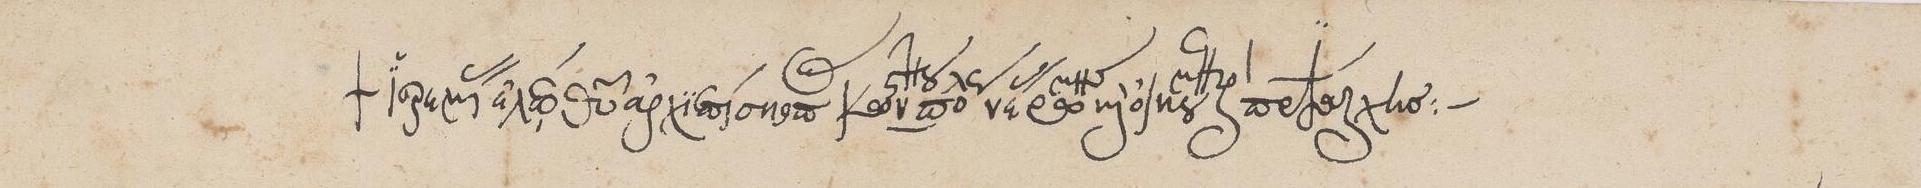 + Ἱερεμίας ἐλέῳ Θῦ ἀρχιεπίσκοπος Κωνσταντινουπόλεως νέας Ῥώμης καὶ οἰκουμενικὸς πατριάρχης :-